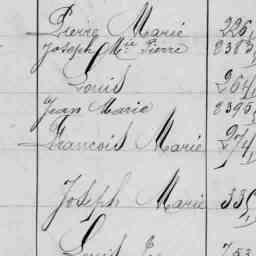 Pierre Marie 226,
Joseph Mie Pierre 8383,
Louis 264,
Jean Marie 8395,
François Marie 274,
Joseph Marie 335,
Louis